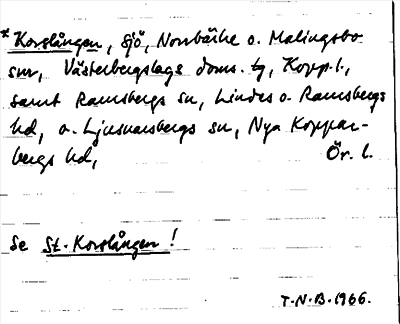 * Korslången, sjö, Norrbärke o. Malingsbo
snr, Västerbergslags doms. tg, Kopp. l.,
samt Ramsbergs sn, Lindes o. Ramsbergs
hd, o. Ljusnarsbergs sn, Nya Koppar-
bergs hd, Ör. l.
Se St. Korslången!
T.N.B. 1966.